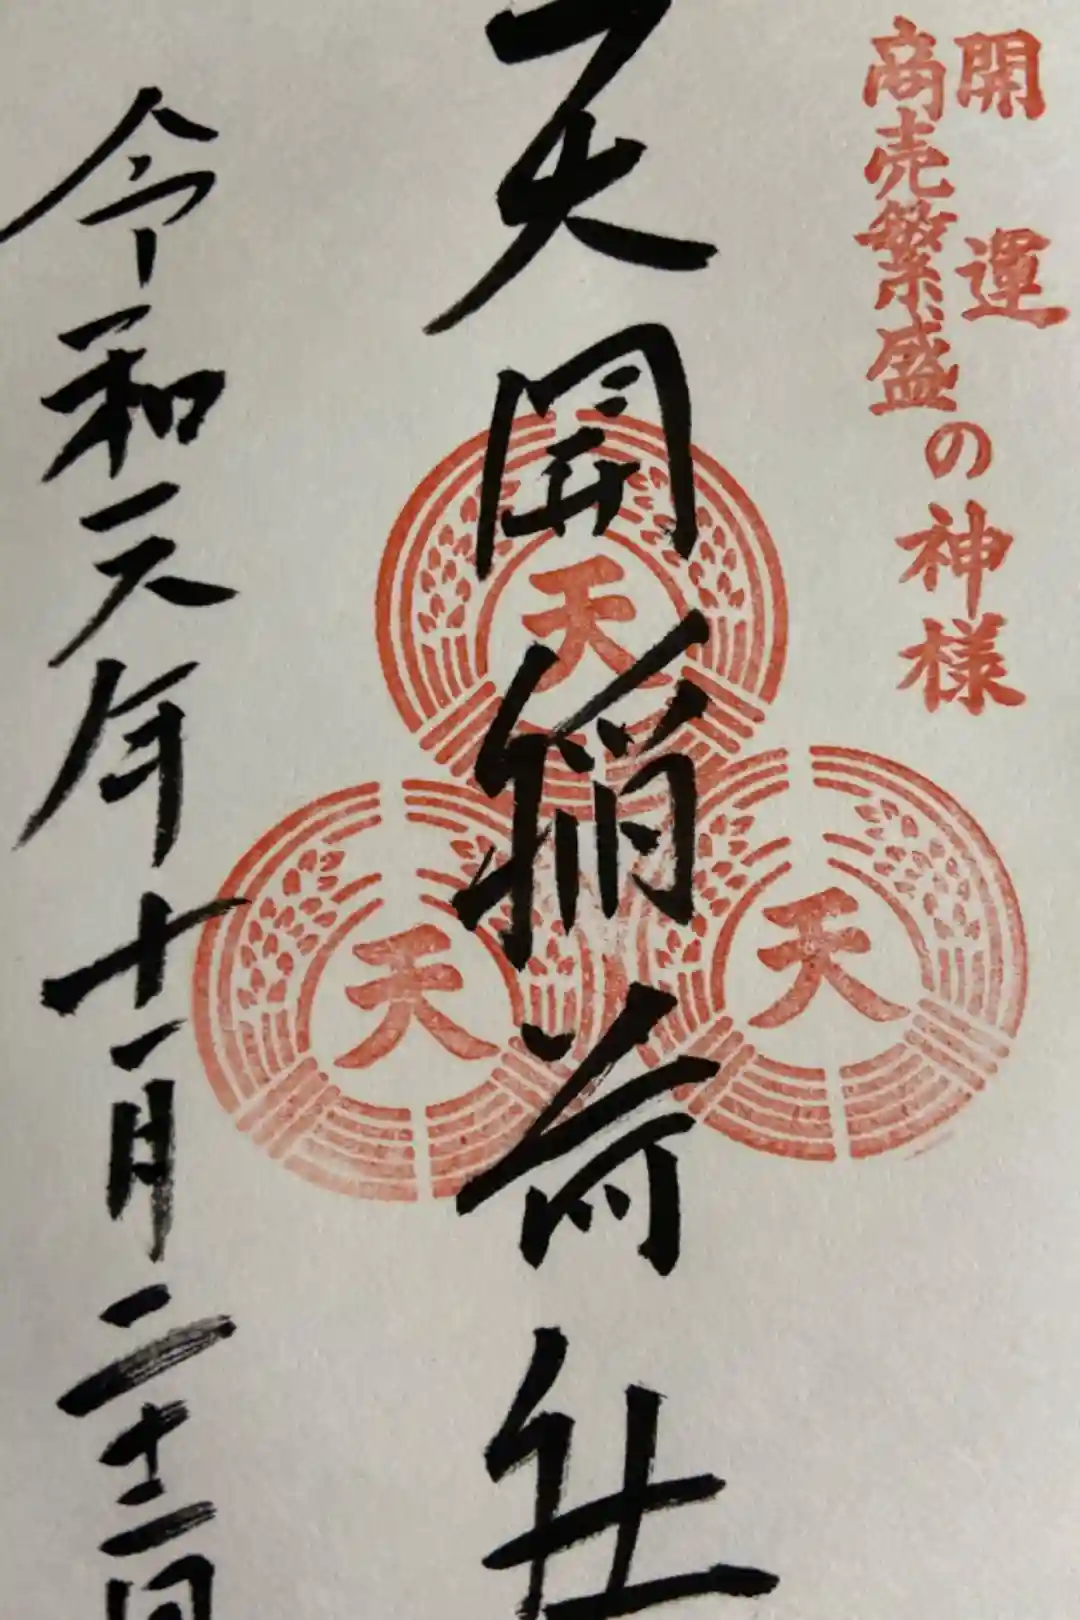 開運
商売繁盛
の神様
天開稲荷社
天
天
天
令和元年十一月二十三日